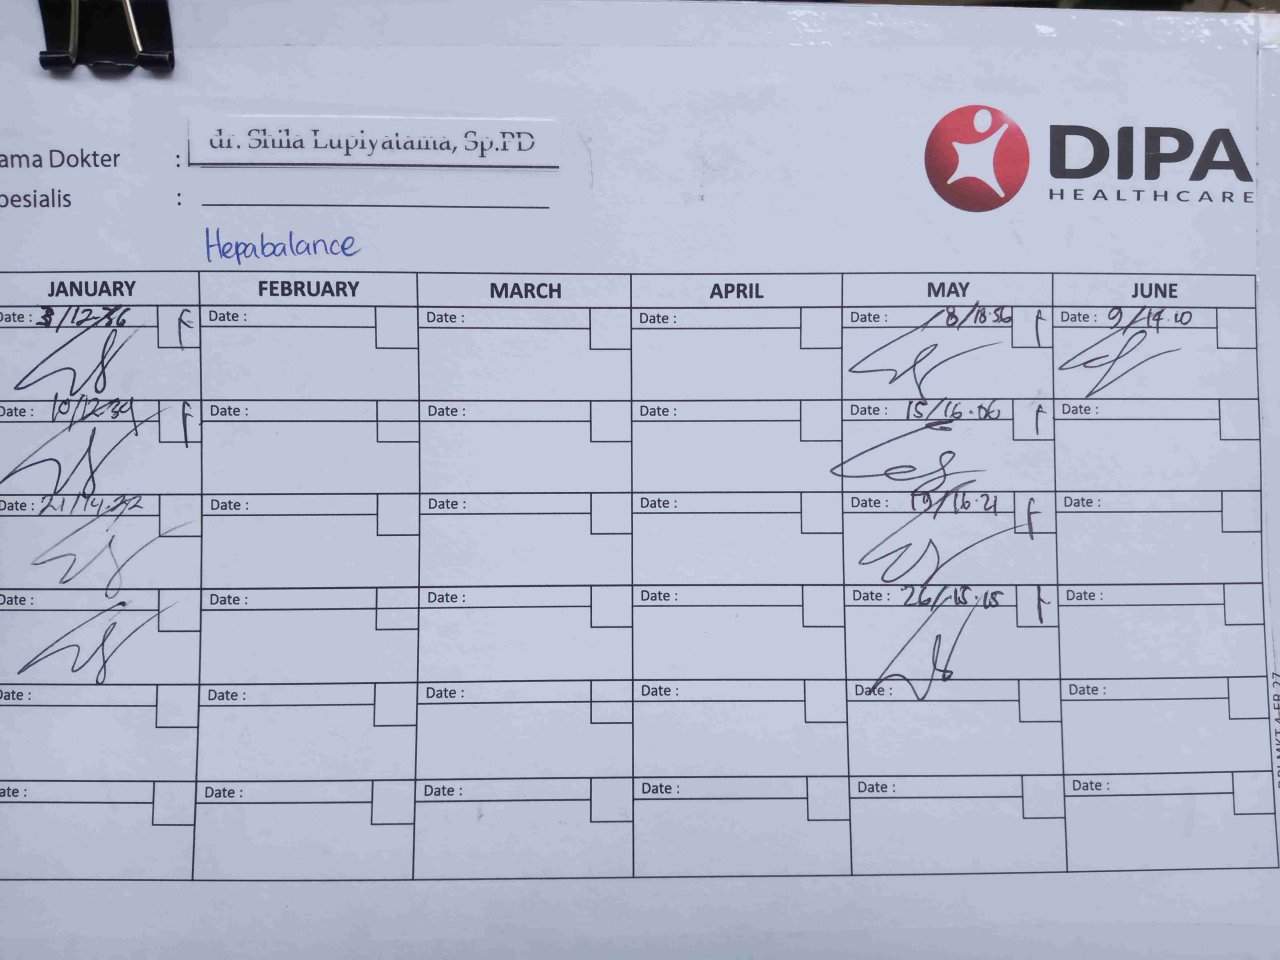 ama Dokter : dr. Shila Lupiyatama, Sp.PD
pesialis :
DIPA
HEALTHCARE
Hepabalance
JANUARY FEBRUARY MARCH APRIL MAY JUNE
Date : 3/12.36 Date : Date : Date : Date : 8/18.56 Date : 9/14.10
Date : 10/12.34 Date : Date : Date : Date : 15/16.06 Date :
Date : 21/14.32 Date : Date : Date : Date : 19/16.21 Date :
Date : Date : Date : Date : Date : 26/15.15 Date :
Date : Date : Date : Date : Date : Date :
ate : Date : Date : Date : Date : Date :